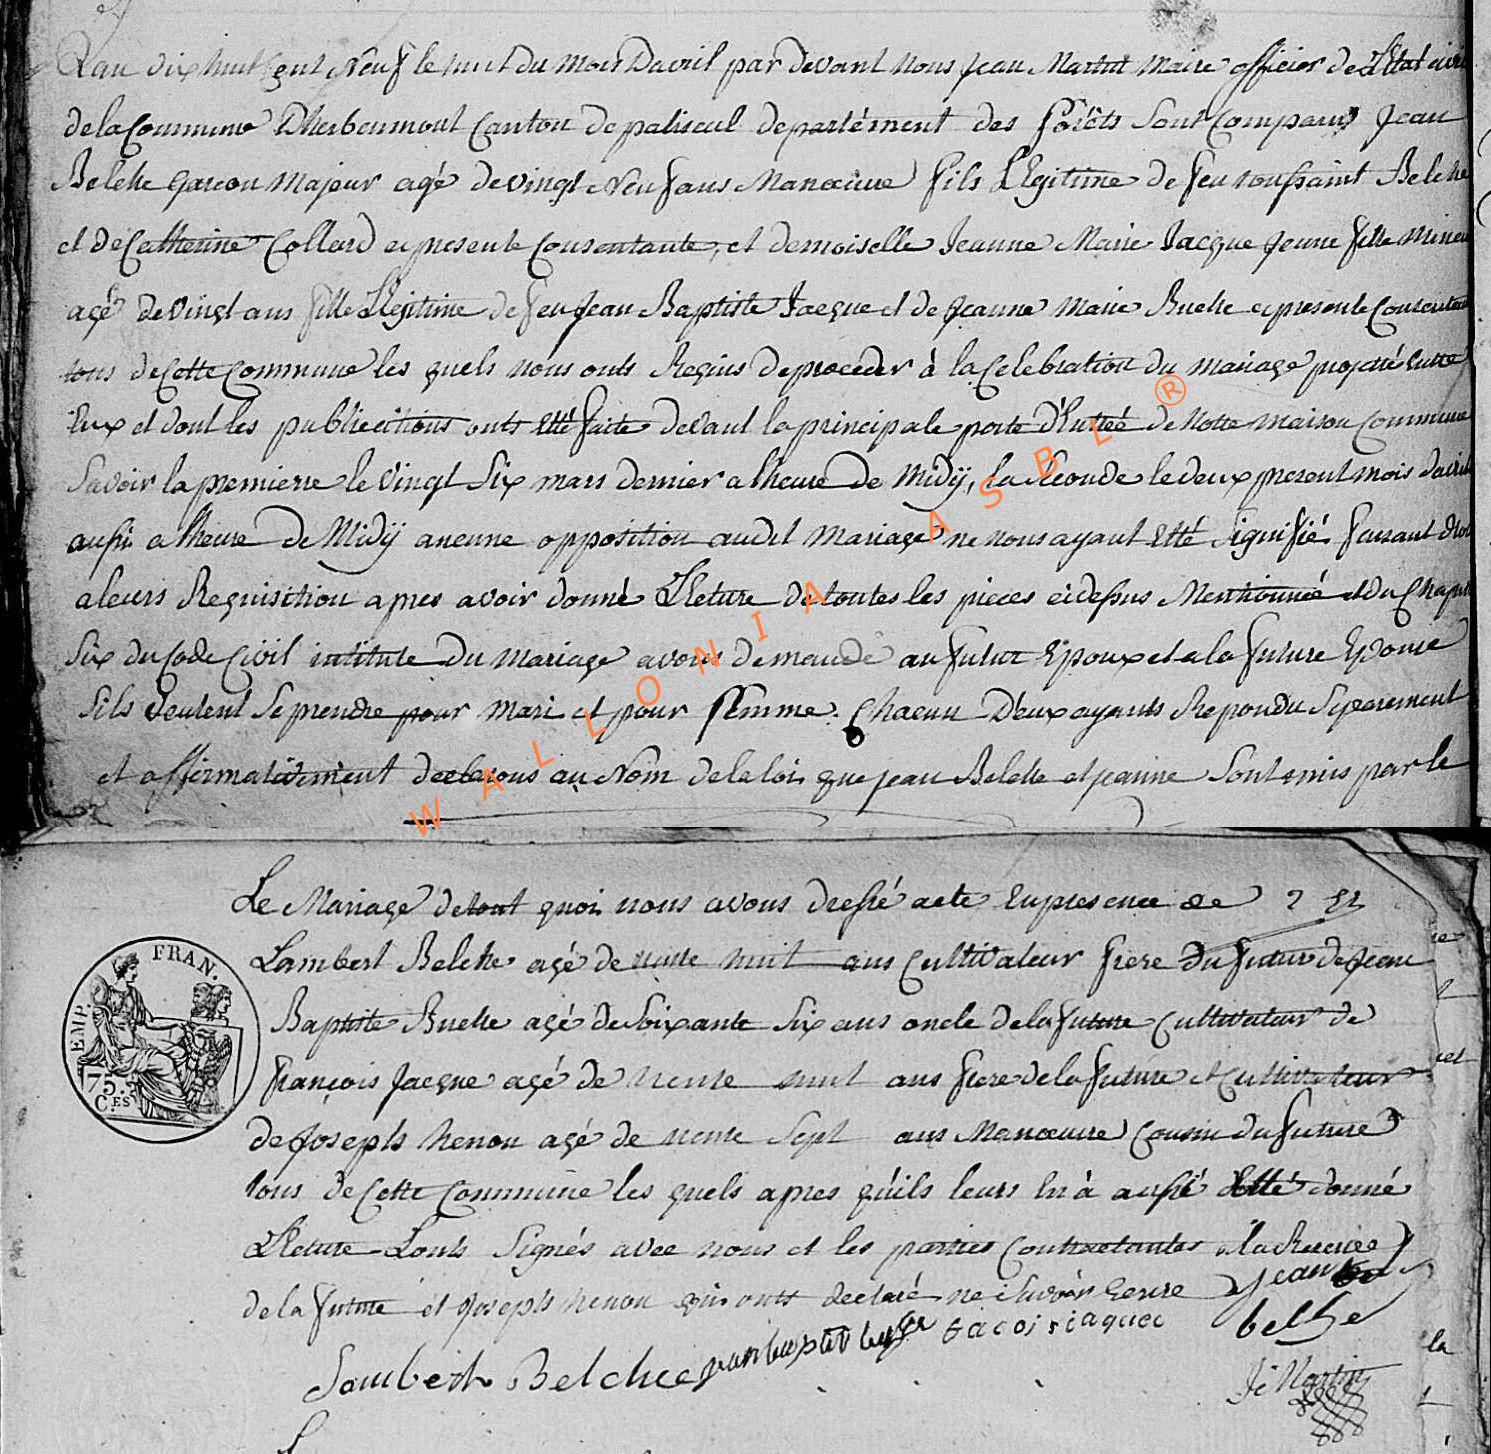 L'an dix huit cent Neuf le huit du mois Davril par devant Nous Jean Martin Maire officier de L'Etat civil
de la Commune D'herbeumont Canton de paliseul departément des forêts Sont Comparus Jean
Belche garcon Majeur agé de vingt Neuf ans Manoeuvre fils Légitime de feu toussaint Belche
et de Catherine Collard cy presente Consentante, et demoiselle Jeanne Marie Jacque Jeune fille Mineur
agé de vingt ans fille Légitime de feu Jean Baptiste Jacque et de Jeanne Marie Buche cy presente Consentante
tous de Cette Commune les quels nous onts Requis de proceder à la Celebration du mariage projetté entre
Eux et dont les publications onts Etté faite devant la principale porte d'Entreé de Notte maison Commune
Savoir la premierre le vingt Six mars dernier a lheure de Midÿ, la Seconde le deux present mois davril
aussi a lheure de Midÿ aucune opposition audit Mariage ne nous ayant Etté Signifié faisant droit
a leurs Requisition apres avoir donné Lecture de toutes les pieces cidessus Mentionnée et du Chapitre
Six du Code Civil intitule du Mariage avons demandé au futur Epoux et a la future Epouse
Sils veulent Se prendre pour Mari et pour femme. Chacun D'eux ayants Repondu Separement
et affirmativement declarons au Nom de la loi que jean Belche et jeanne Sont unis par le
Le Mariage de tout quoi nous avons dressé acte En presence de
Lambert Belche agé de trente huit ans Cultivateur frere du futur de Jean
Baptiste Buche agé de Soixante Six ans oncle de la future Cultivateur de
François Jacque agé de trente huit ans frere de la future et Cultivateur
de Joseph henon agé de trente Sept ans Manoeuvre Cousin du future
tous de Cette Commune les quels apres qu'ils leurs En à aussi Etté donné
Lecture Lonts Signés avec nous et les parties Contractantes
de la future et Joseph henon qui onts declaré ne Savoir Ecrire Jean
belche
Lambert Belche
J: Martin
EMP. FRAN.
75.
C.ES
WALLONIA ASBL ®